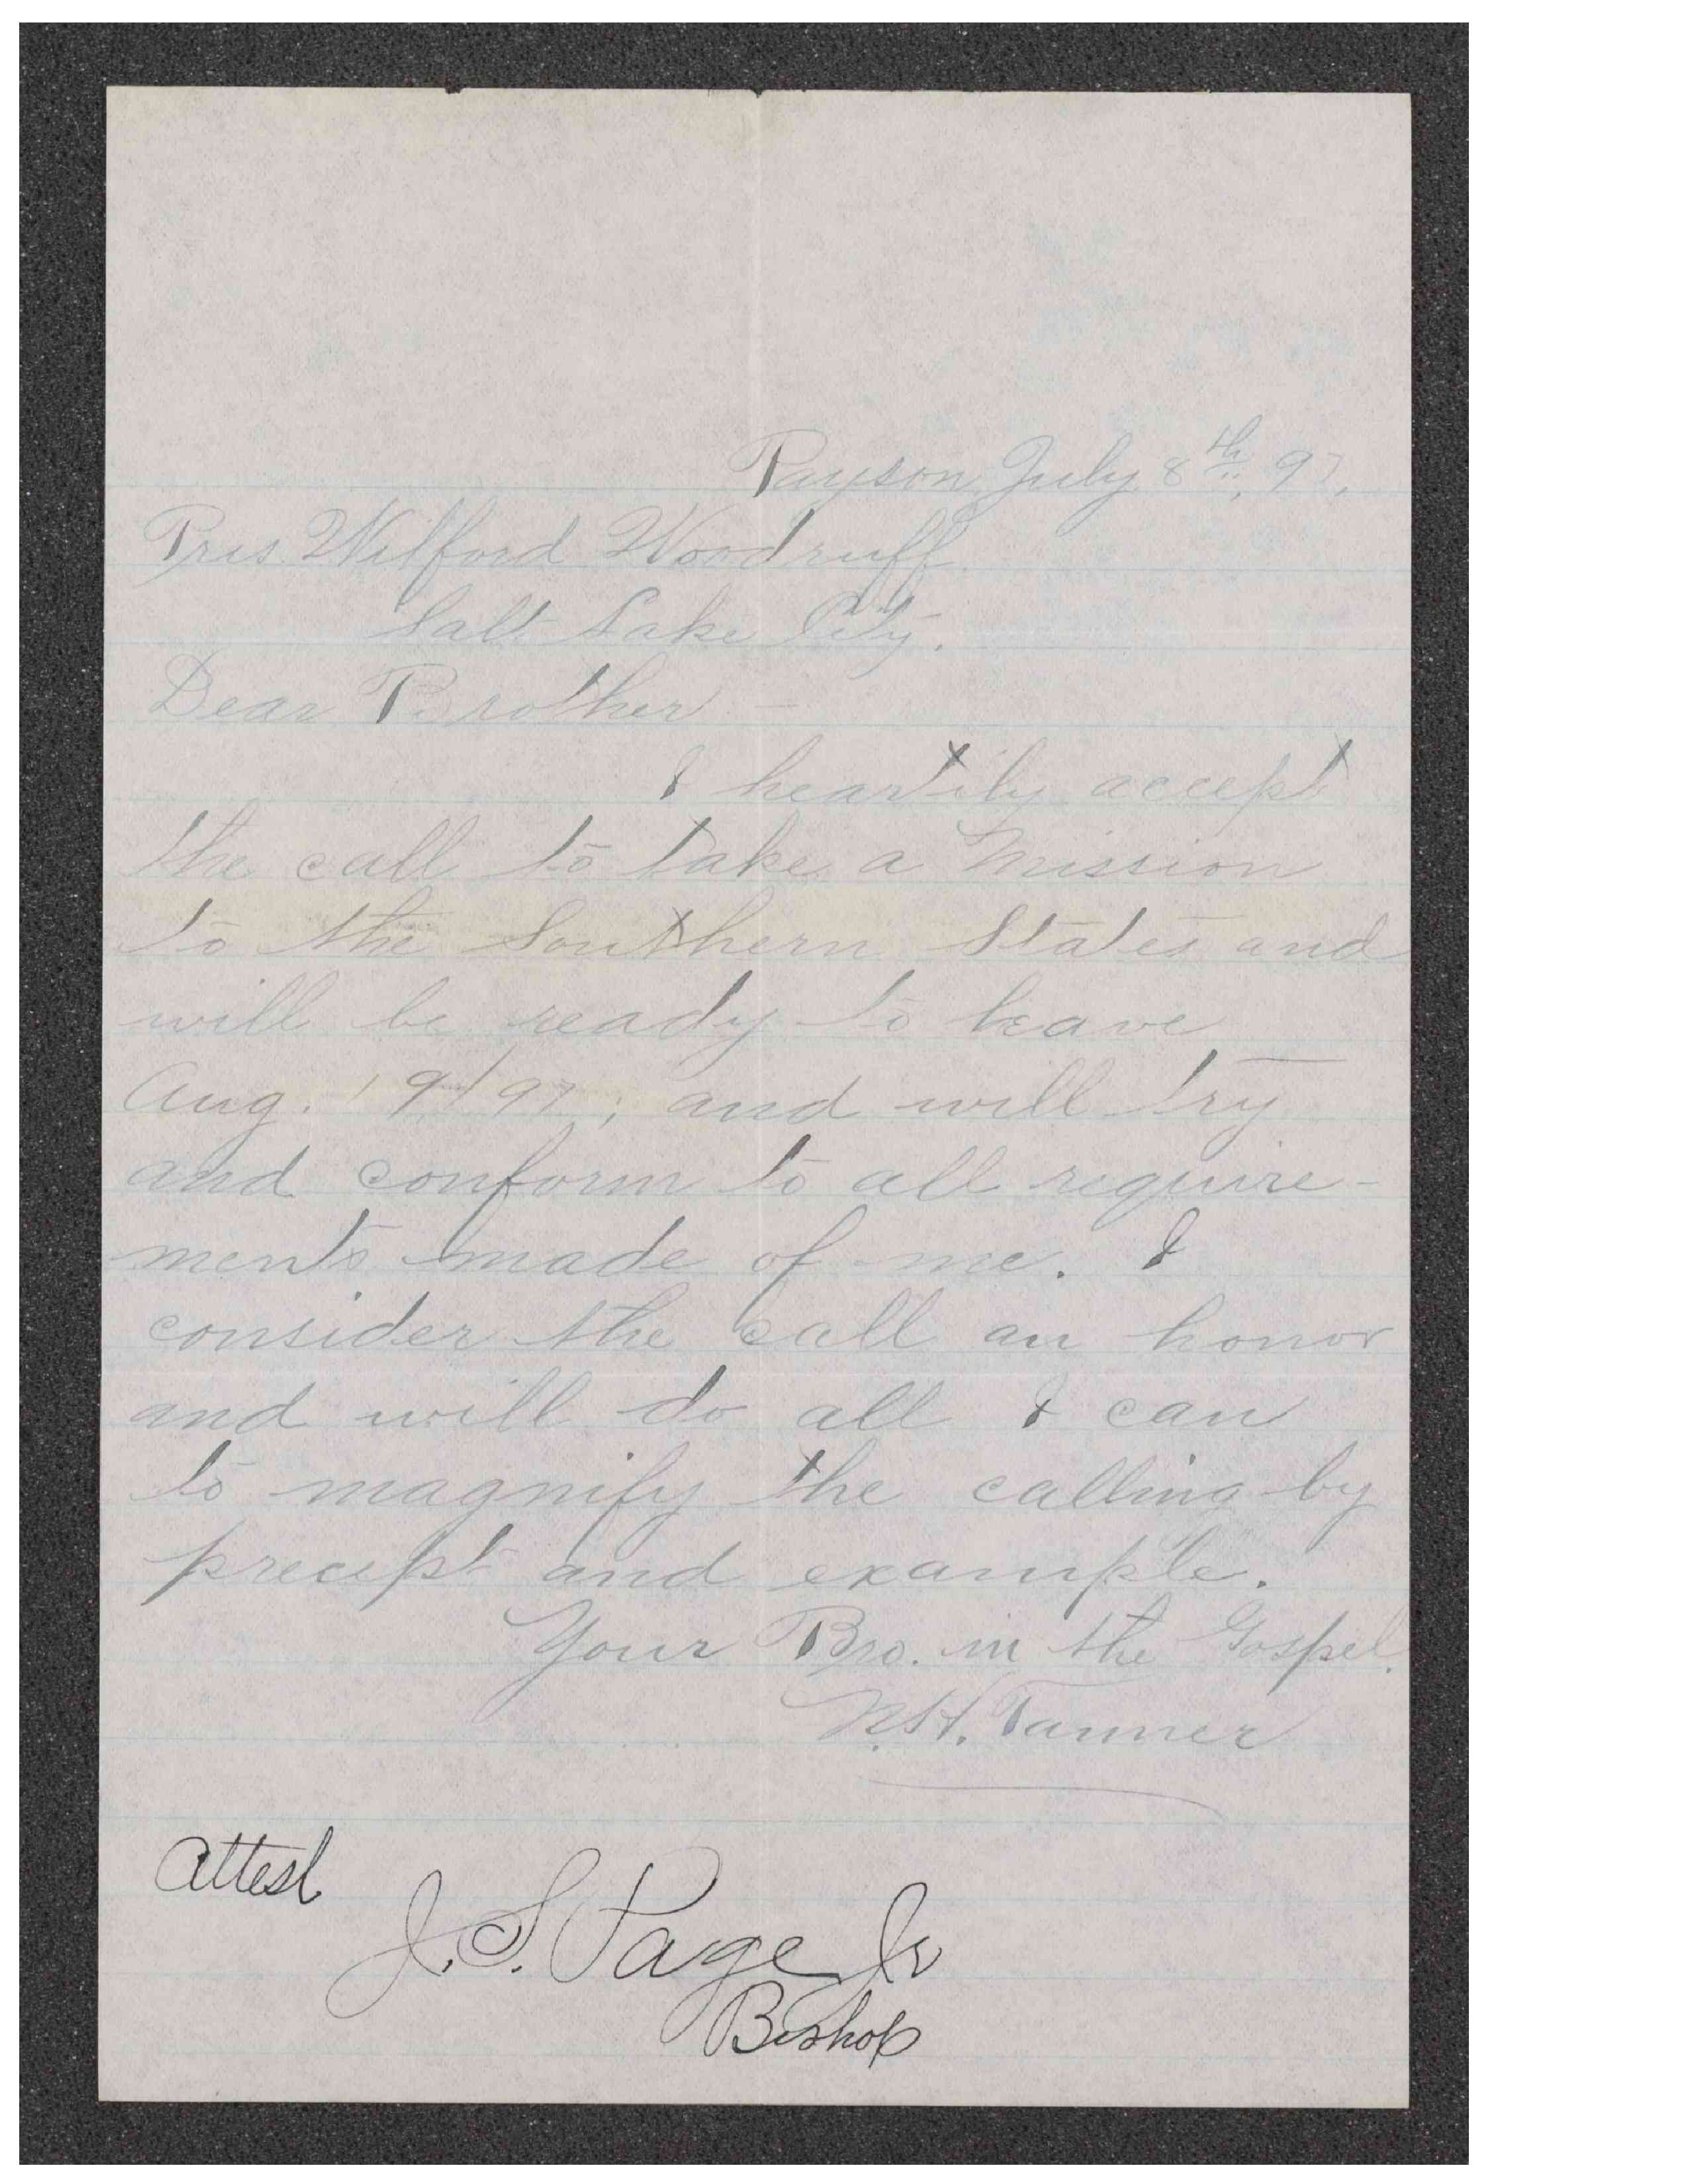 Payson July 8th, 97.
Pres Wilford Woodruff
Salt Lake City.
Dear Brother –
I heartily accept
the call to take a Mission
to the Southern States and
will be ready to leave
Aug. 19/97; and will try
and conform to all require-
ments made of me. I
consider the call an honor
and will do all I can
to magnify the calling by
precept and example.
Your Bro. in the Gospel.
N.H. Tanner
Attest
J.S. Page Jr
Bishop